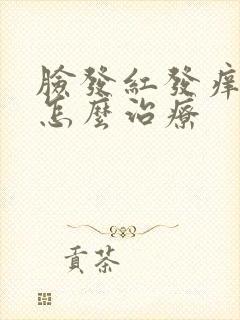 臉發紅發痒
怎麼治療
貢茶